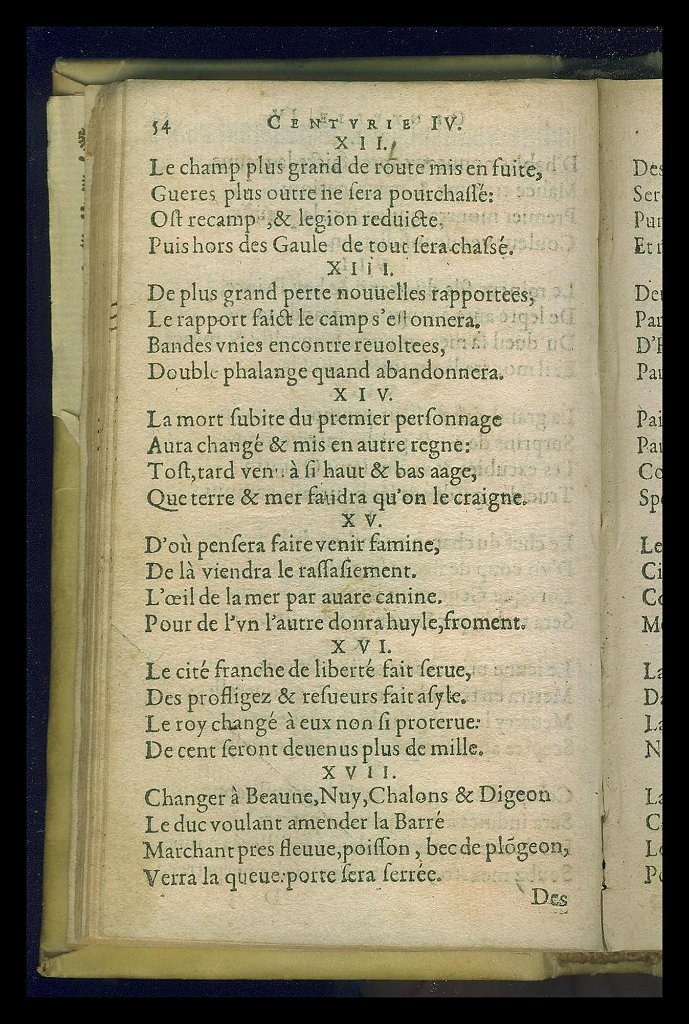 54 CENTVRIE IV.
XII.
Le champ plus grand de route mis en fuite,
Gueres plus outre ne ſera pourchaſſé:
Oſt recamp ,& legion reduicte,
Puis hors des Gaule de tout ſera chaſsé.
XIII.
De plus grand perte nouuelles rapportees,
Le rapport faict le camp s'eſtonnera.
Bandes vnies encontre reuoltees,
Double phalange quand abandonnera.
XIV.
La mort ſubite du premier perſonnage
Aura changé & mis en autre regne:
Toſt,tard venu à ſi haut & bas aage,
Que terre & mer faudra qu'on le craigne.
XV.
D'où penſera faire venir famine,
De là viendra le raſſaſiement.
L'œil de la mer par auare canine.
Pour de l'vn l'autre donra huyle,froment.
XVI.
Le cité franche de liberté fait ſerue,
Des profligez & reſueurs fait aſyle.
Le roy changé à eux non ſi proterue:
De cent ſeront deuenus plus de mille.
XVII.
Changer à Beaune,Nuy,Chalons & Digeon
Le duc voulant amender la Barré
Marchant pres fleuue,poiſſon, bec de plõgeon,
Verra la queue:porte ſera ſerrée.
Des
Des
Ser
Et
Pai
Co
Le
Ci
Co
La
La
N
La